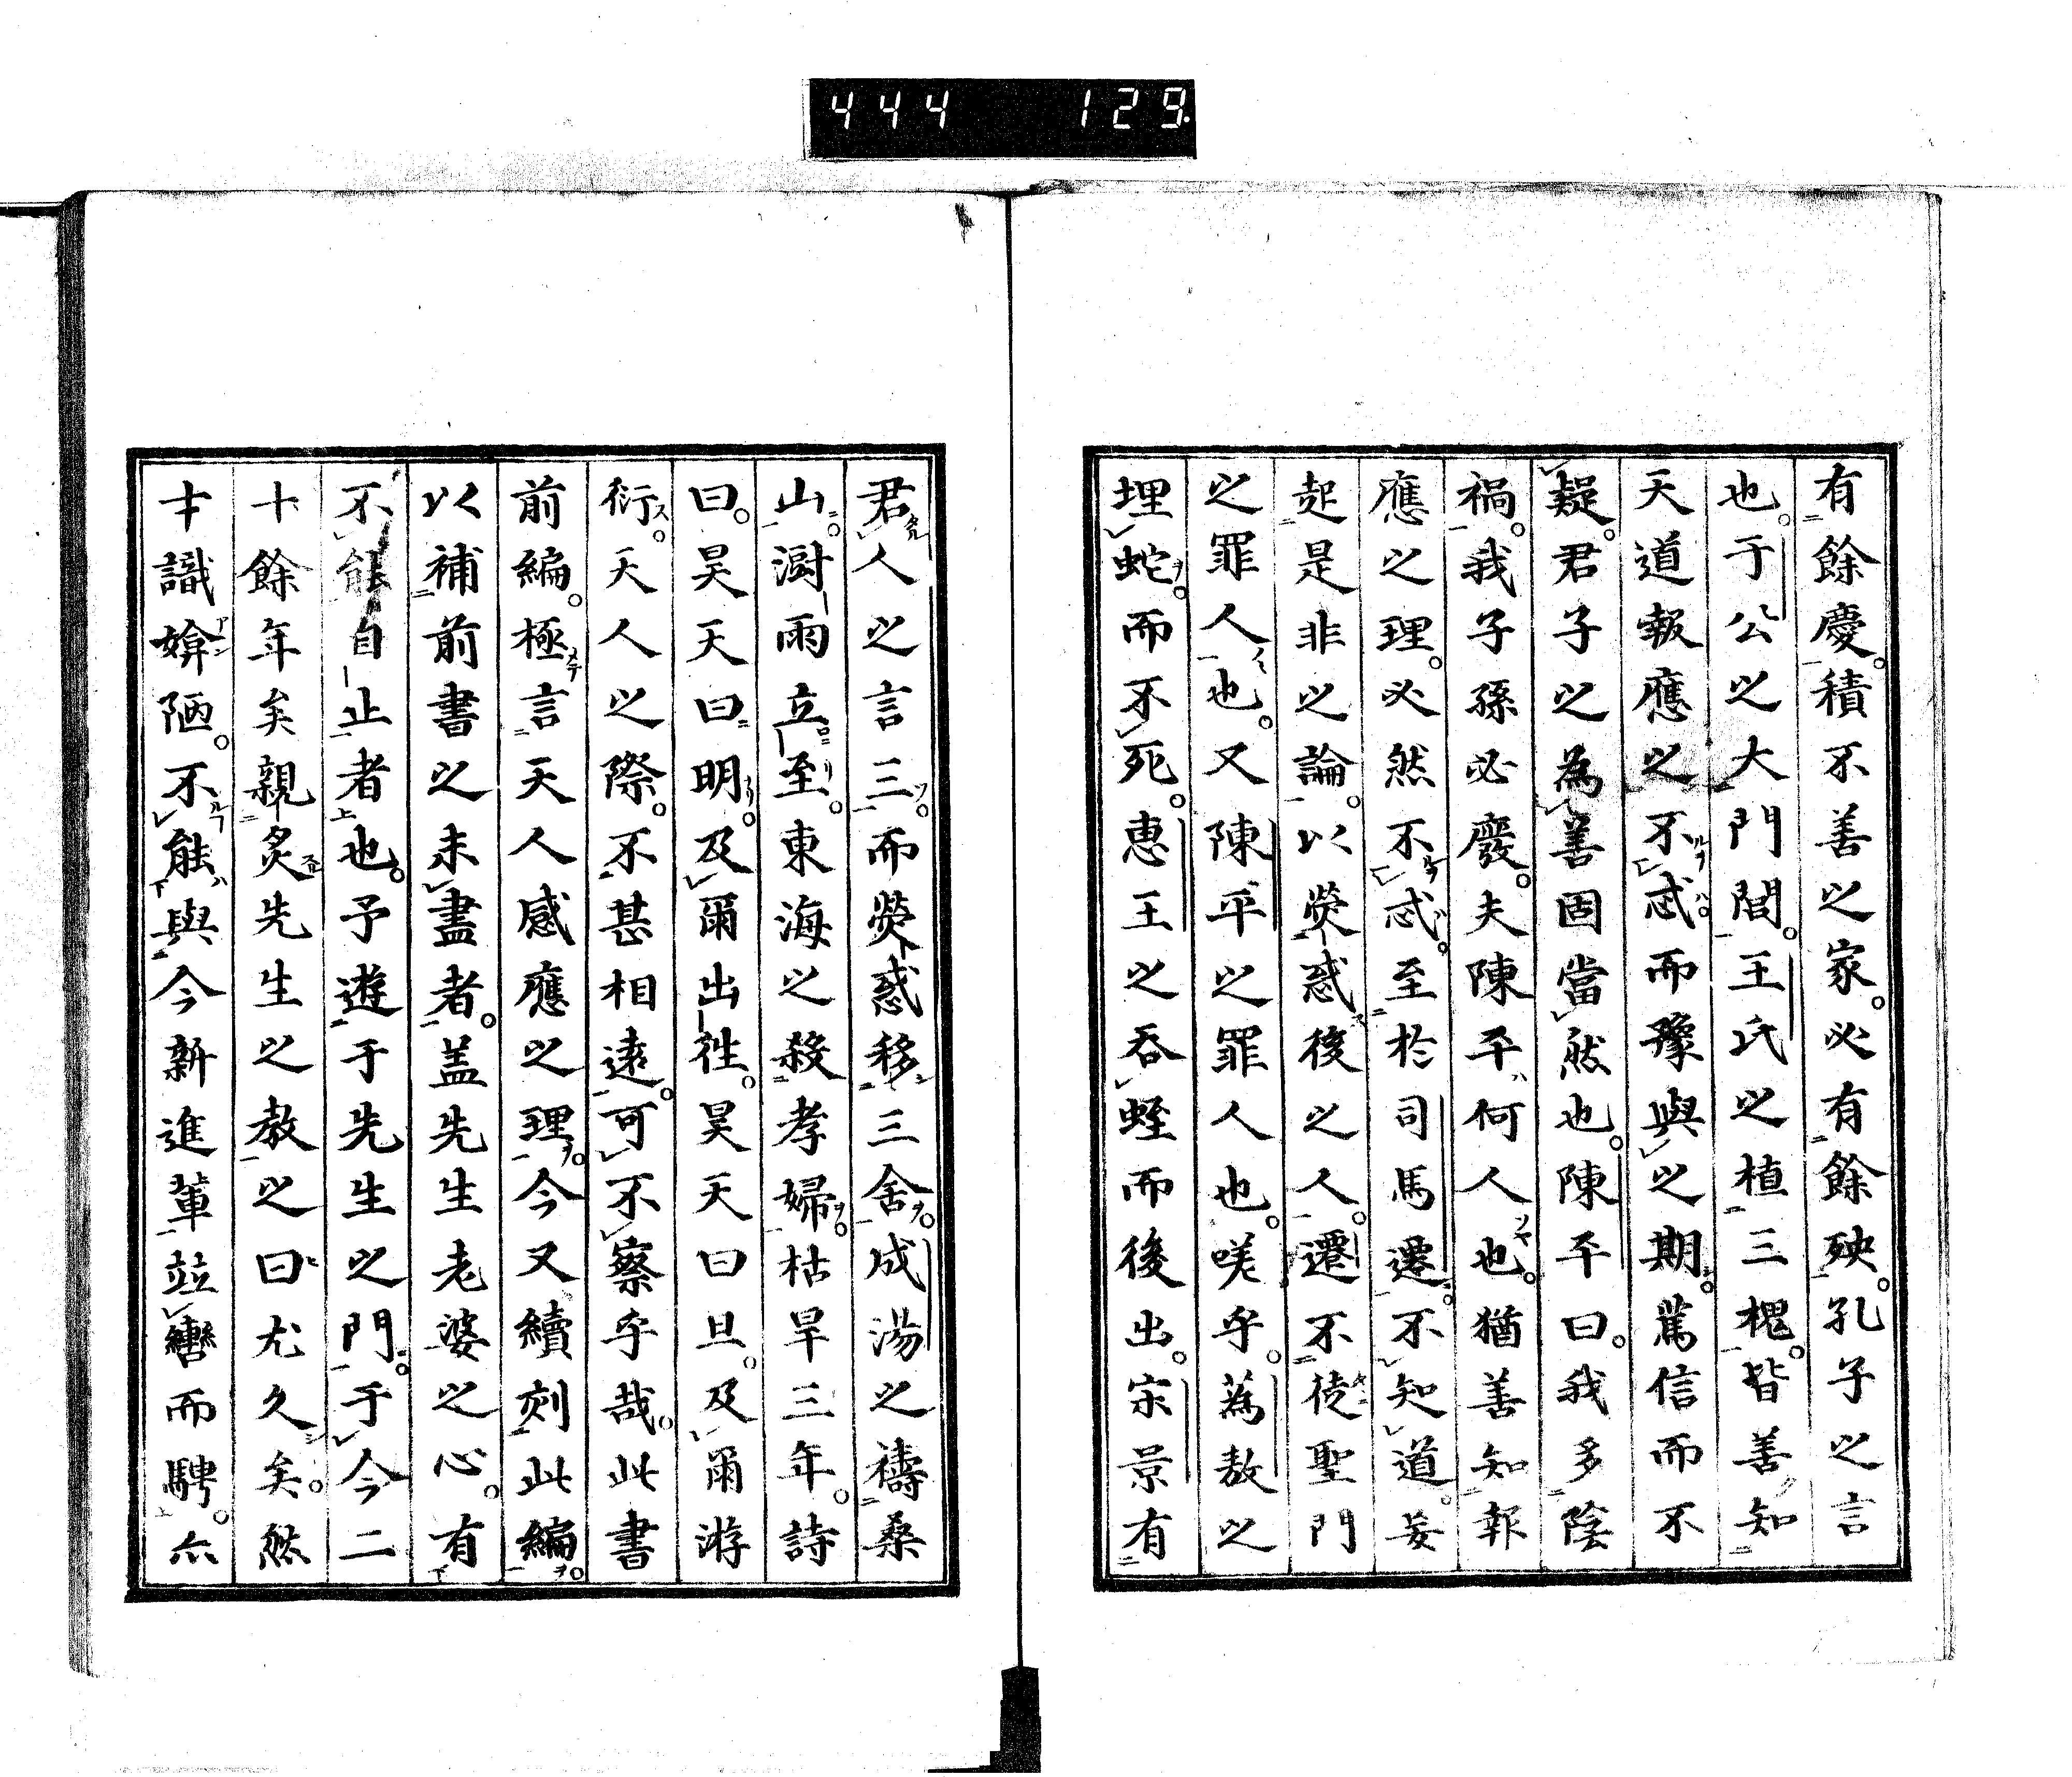 444 129
有餘慶。積不善之家。必有餘殃。孔子之言
也。于公之大門閭。王氏之植三槐。皆善知
天道報應之不忒而豫與之期。篤信而不
疑。君子之為善固當然也。陳平曰。我多陰
禍。我子孫必廢。夫陳平何人也。猶善知報
應之理。必然不忒。至於司馬遷。不知道。妄
起是非之論。以熒惑後之人。遷不徒聖門
之罪人也。又陳平之罪人也。嗟乎。為敖之
埋蛇。而不死。惠王之吞蛭而後出。宋景有
君人之言三。而熒惑移三舍。成湯之禱桑
山。澍雨立至。東海之殺孝婦。枯旱三年。詩
曰。昊天曰明。及爾出往。昊天曰旦。及爾游
衍。天人之際。不甚相遠。可不察乎哉。此書
前編。極言天人感應之理。今又續刻此編。
以補前書之未盡者。盖先生老婆之心。有
不能自止者也。予遊于先生之門。于今二
十餘年矣親炙先生之教之曰尤久矣。然
才識媕陋。不能與今新進輩竝轡而騁。亦